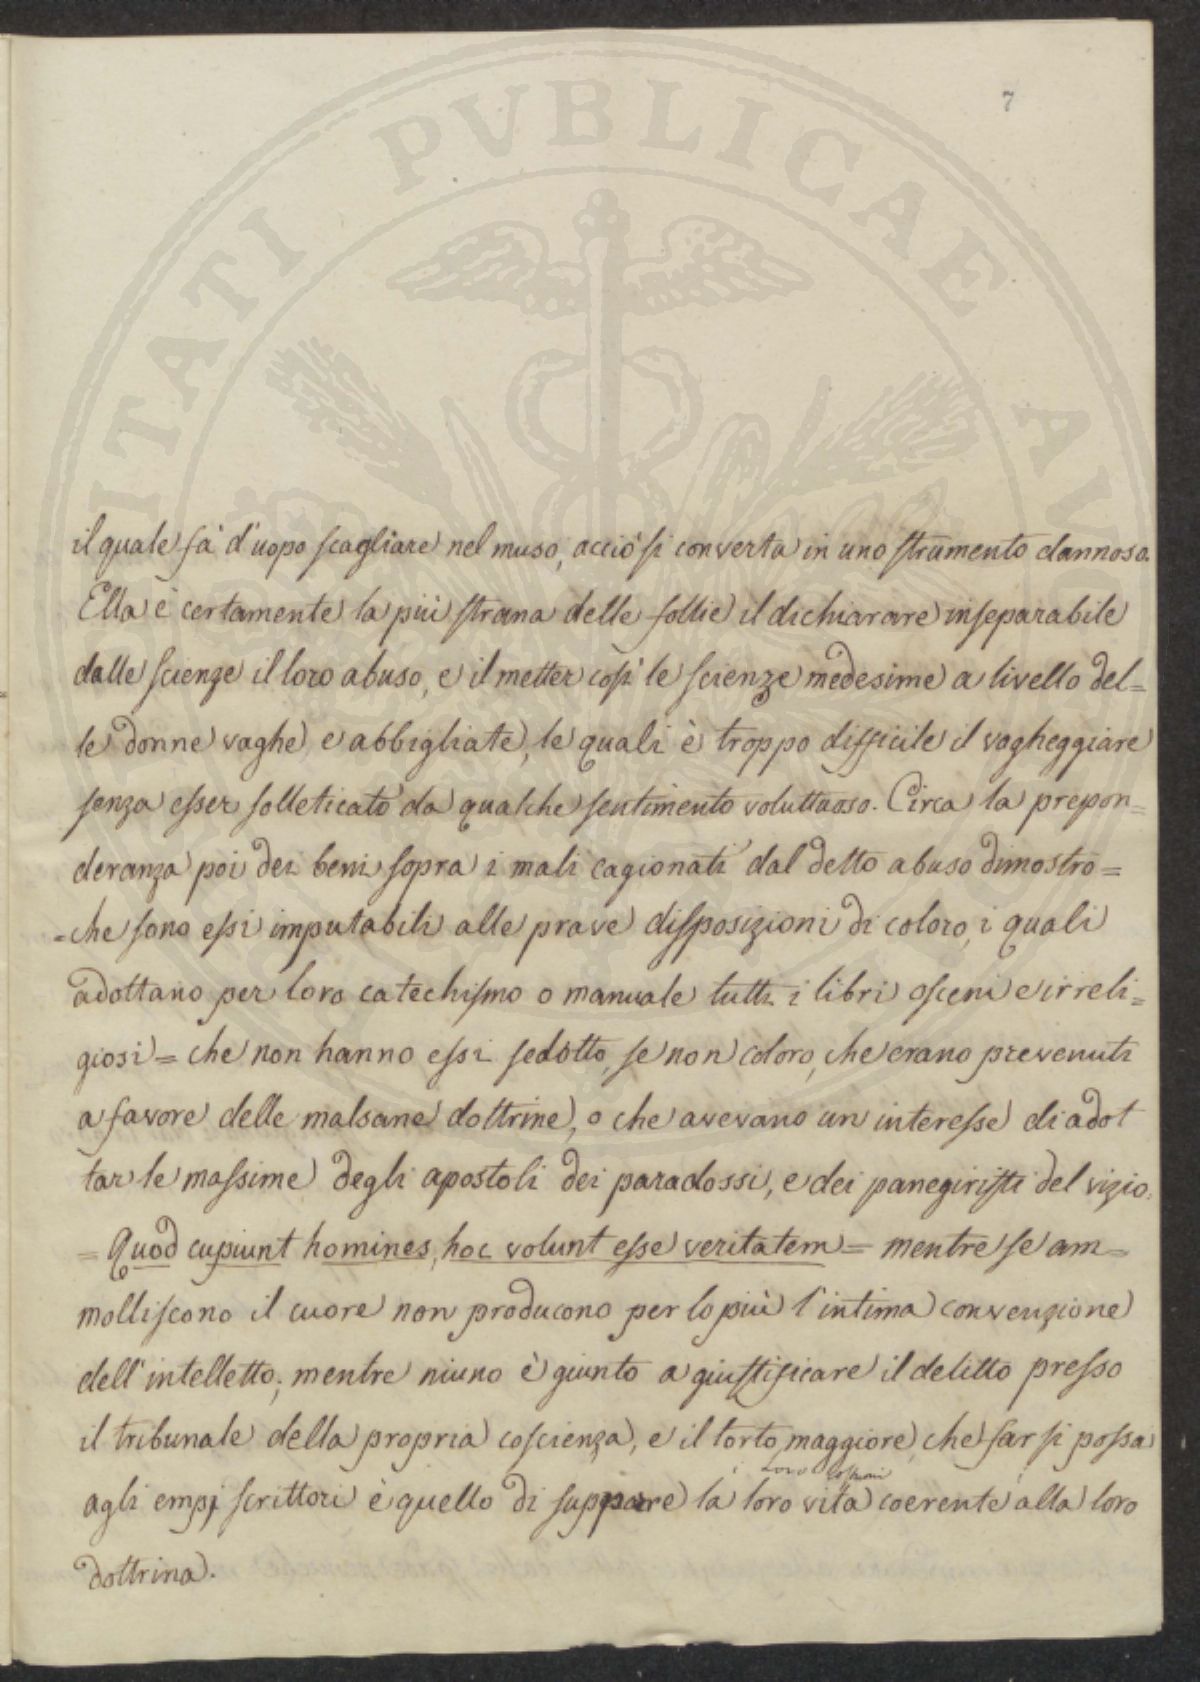 7
il quale fa d'uopo scagliare nel muso, acciò si converta in uno strumento dannoso.
Ella è certamente la più strana delle follie il dichiarare inseparabile
dalle scienze il loro abuso, e il metter così le scienze medesime a livello del=
le donne vaghe e abbigliate, le quali è troppo difficile il vagheggiare
senza esser solleticato da qualche sentimento voluttuoso. Circa la prepon=
deranza poi dei beni sopra i mali cagionati dal detto abuso dimostrò=
=che sono essi imputabili alle prave disposizioni di coloro, i quali
adottano per loro catechismo o manuale tutti i libri osceni e irreli=
giosi= che non hanno essi sedotto, se non coloro, che erano prevenuti
a favore delle malsane dottrine, o che avevano un interesse di adot
tar le massime degli apostoli dei paradossi, e dei panegiristi del vizio.
=Quod cupiunt homines, hoc volunt esse veritatem= mentre se am=
molliscono il cuore non producono per lo più l'intima convenzione
dell'intelletto; mentre niuno è giunto a giustificare il delitto presso
il tribunale della propria coscienza, e il torto maggiore, che far si possa
loro costumi
agli empj scrittori è quello di suppore la loro vita coerente alla loro
dottrina.
ITATI PVBLICAE AVC